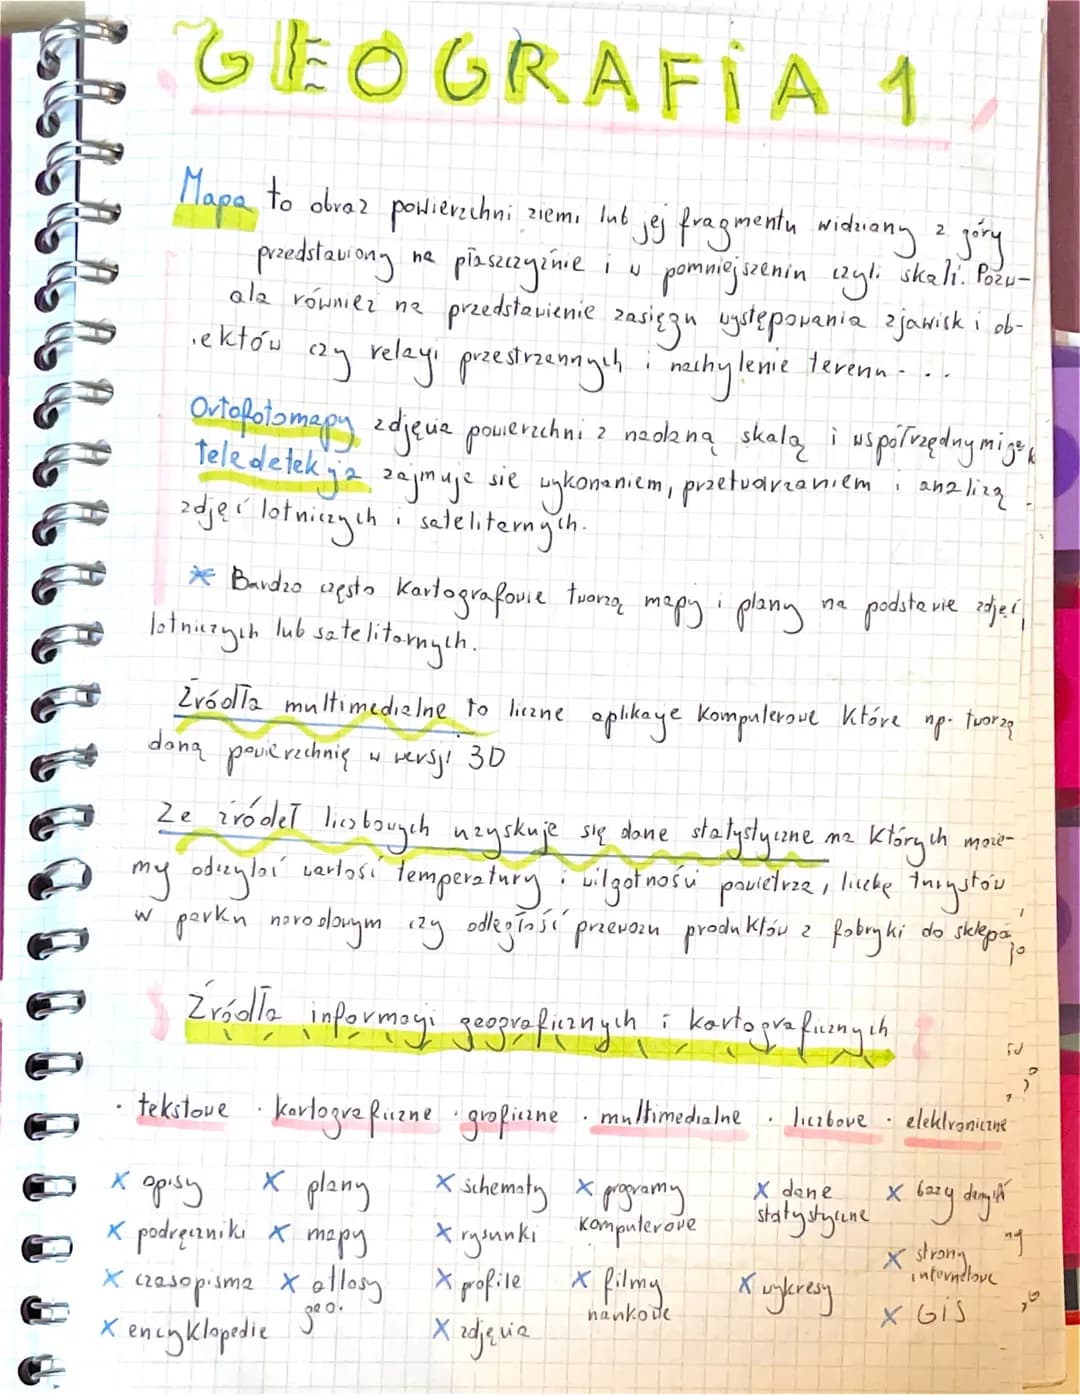 GEOGRAFIA 1
Mapa to obraz powierzchni ziemi lub jej fragmentu widziany z góry
przedstawiony na płaszczyźnie i w pomniejszeniu czyli skali. Pozw-
ala również na przedstawienie zasięgu występowania zjawisk i ob-
iektów czy relacji przestrzennych i nachylenie terenu...
Ortofotomapy zdjęcia powierzchni z nadaną skalą i współrzędnymi geo
Teledetekcja zajmuje sie wykonaniem, przetwarzaniem i analizą
zdjęć lotniczych i satelitarnych.
* Bardzo często kartografowie tworzą mapy i plany na podstawie zdjęć
lotniczych lub satelitarnych.
Źródła multimedialne to liczne aplikacje komputerowe które np. tworzą
daną powierzchnię w wersji 3D
Ze źródeł liczbowych uzyskuje się dane statystyczne na których może-
my odczytać wartość temperatury i wilgotności powietrza, liczbę turystów
w parku narodowym czy odległość przewozu produktów z fabryki do sklepa
Źródła informacji geograficznych i kartograficznych
· tekstowe · kartograficzne · graficzne · multimedialne · liczbowe · elektroniczne
x opisy x plany x schematy x programy x dane x bazy danych
komputerowe statystyczne
x podręczniki x mapy x rysunki
x strony
internetowe
x czasopisma x atlasy x profile x filmy x wykresy
geo. naukowe
x GIS
x encyklopedie x zdjęcia